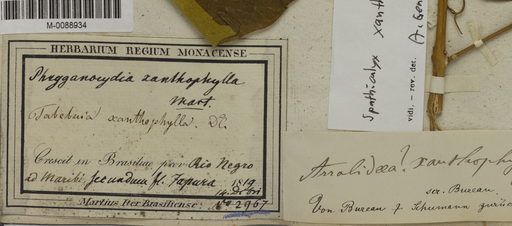 M-0088934
HERBARIUM REGIUM MONACENSE
Phryganocydia xanthophylla
Mart.
Tabebuia xanthophylla. DC.
Crescit in Brasiliae prov Rio Negro
ad Maribi, secundum fl. Japura 1819
Martius Iter Brasiliense: No 2967
Spathicalyx xanth
vidi. – rev. det. A. Gen
Arrabidaea? xanthophy
scr. Bureau.
Von Bureau & Schumann zurück